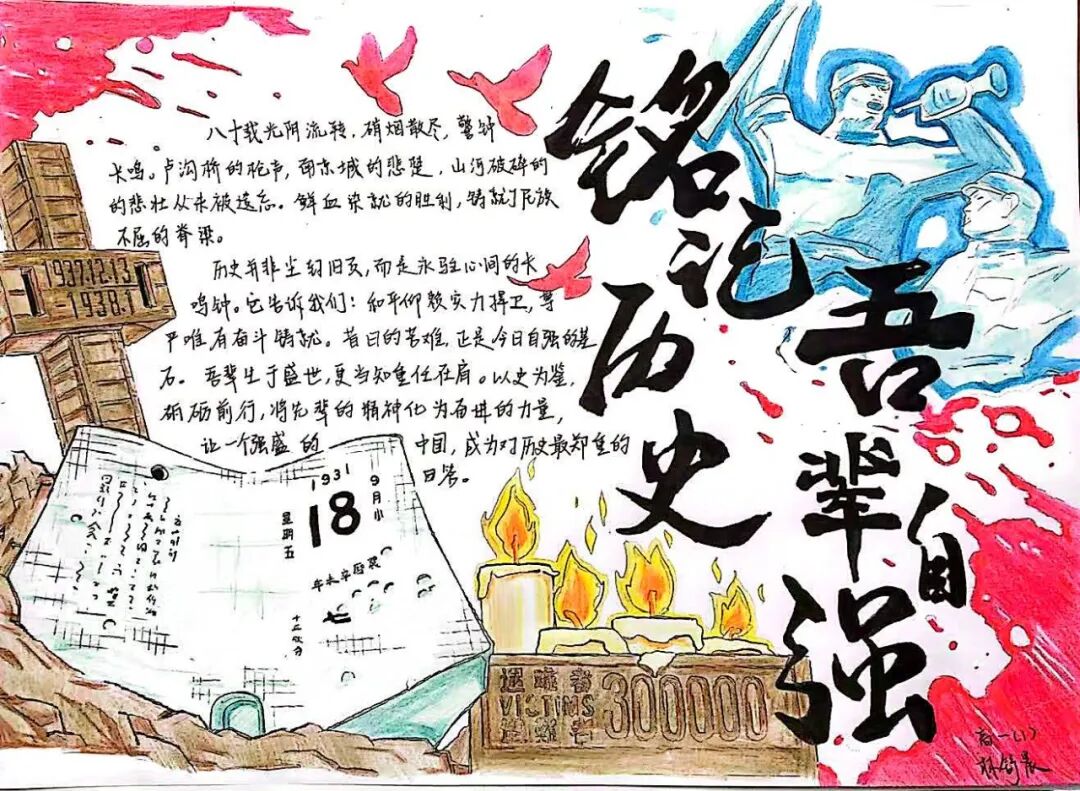 铭记历史
吾辈自强
八十载光阴流转,硝烟散尽,警钟
长鸣。卢沟桥的枪声,南京城的悲楚,山河破碎的
的悲壮从未被遗忘。鲜血染就的胜利,铸就了民族
不屈的脊梁。
历史并非尘封的旧页,而是永驻心间的长
鸣钟。它告诉我们:和平仰赖实力捍卫,尊
严唯有奋斗铸就。昔日的苦难,正是今日自强的基
石。吾辈生于盛世,更当知重任在肩。以史为鉴,
砥砺前行,将先辈的精神化为奋进的力量,
让一个强盛的中国,成为对历史最郑重的
回答。
1937.12.13
-1938.1
1931
9月小
18
星期五
遇难者
VICTIMS
300000
高一(1)